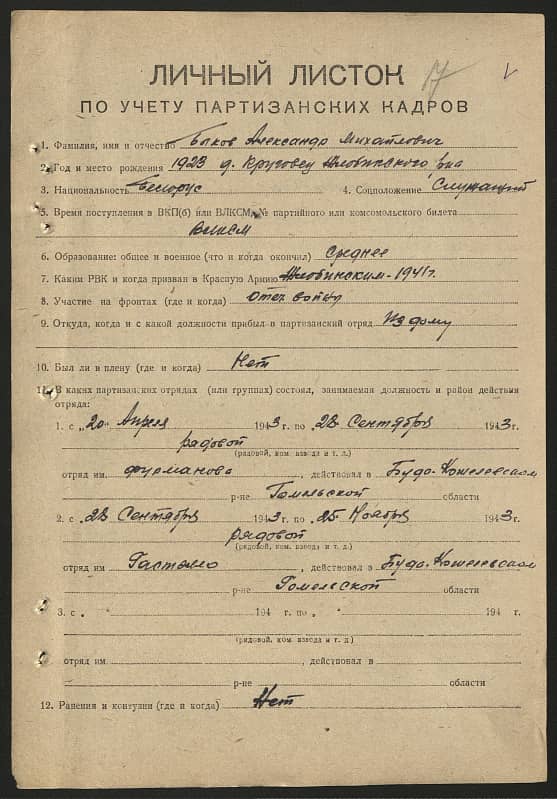 ЛИЧНЫЙ ЛИСТОК 17 V
ПО УЧЕТУ ПАРТИЗАНСКИХ КАДРОВ
1. Фамилия, имя и отчество Быков Александр Михайлович
2. Год и место рождения 1923 д. Круговец Жлобинского р/на
3. Национальность Белорус 4. Соцположение Служащий
5. Время поступления в ВКП(б) или ВЛКСМ, № партийного или комсомольского билета
ВЛКСМ
6. Образование общее и военное (что и когда окончил) Среднее
7. Каким РВК и когда призван в Красную Армию Жлобинским-1941г.
8. Участие на фронтах (где и когда) Отеч войну
9. Откуда, когда и с какой должности прибыл в партизанский отряд Из дому
10. Был ли в плену (где и когда) Нет
11. В каких партизанских отрядах (или группах) состоял, занимаемая должность и район действия
отряда:
1. с „20" Апреля 1943 г. по 28 Сентября 1943 г.
рядовой
(рядовой, ком. взвода и т. д.)
отряд им. Фурманова, действовал в Будо-Кошелевском
р-не Гомельской области
2. с 28 Сентября 1943 г. по 25 Ноября 1943 г.
рядовой
(рядовой, ком. взвода и т. д.)
отряд им Гастелло, действовал в Будо-Кошелевском
р-не Гомельской области
3. с „ 194 г. по „ 194 г.
(рядовой, ком. взвода и т. д.)
отряд им , действовал в
р-не области
12. Ранения и контузии (где и когда) Нет